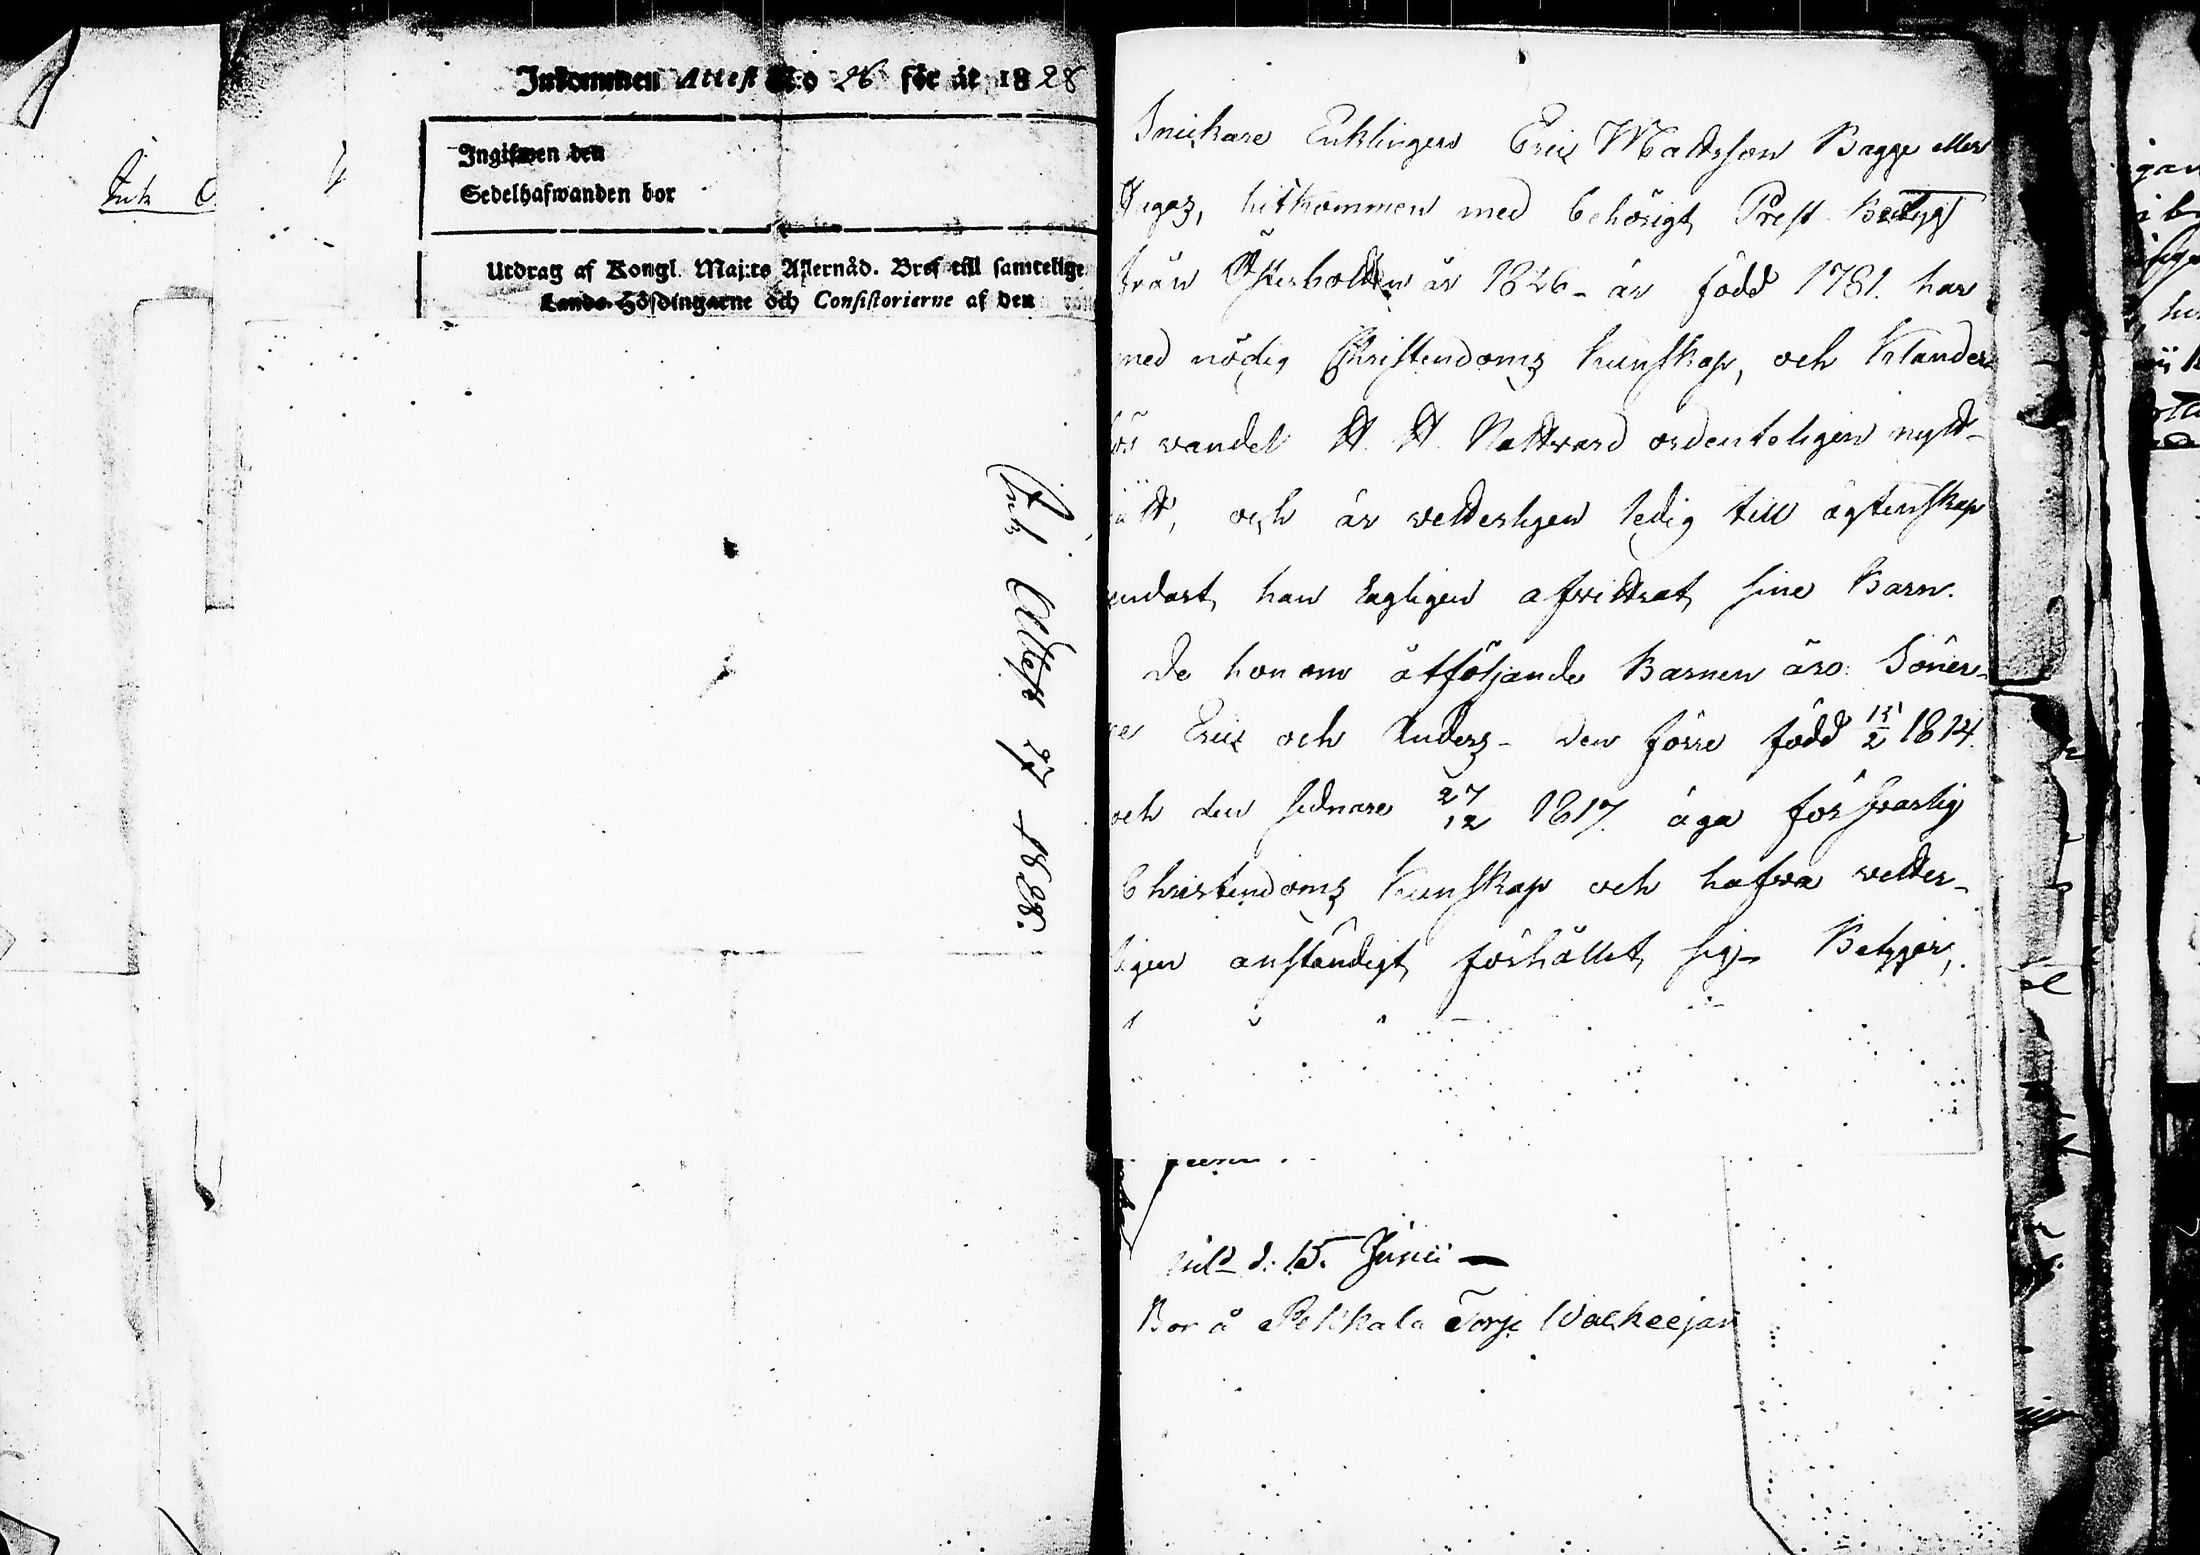 Ink
Inkommen Attest N:o 26 för år 1828
Ingifwen den
Sedelhafwanden bor
Utdrag af Kongl. Maj:ts Allernåd. Bref till samtelige
Lands-Höfdingarne och Consistorierne af den
Ink. Attest 27 1828.
Snickare Enklingen Eric Mattsson Bagge eller
Hagaz, hitkommen med behörigt Prest Betyg
från Österbotten år 1826 - är född 1781. har
med nödig Christendoms kunskap, och Klander
lös vandel H. H. Nattvard ordenteligen nytt-
jatt, och är vetterligen ledig till ägtenskap
endast han lagligen afvittrat sine Barn.
De honom åtföljande Barnen äro: Söner-
ne Eric och Anders - den förre född 15/2 1814.
och den sednare 27/12 1817. äga försvarlig
Christendoms kunskap och hafva vetter-
ligen anständigt förhållet sig - Betygar,
d. 15. Junii —
Bor å Pekkala Torp Walkeejär